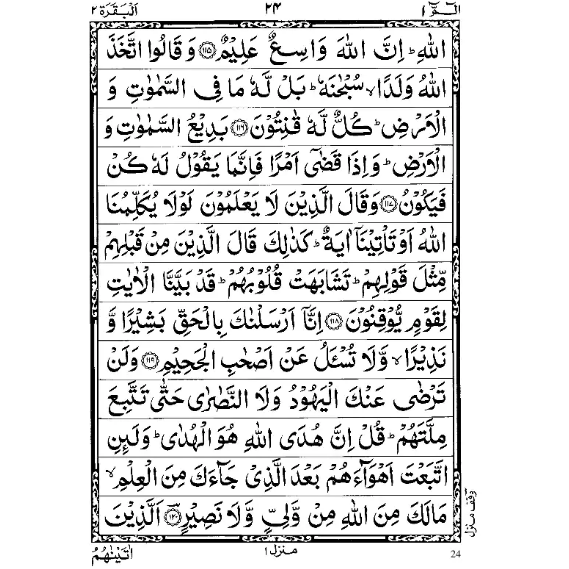 الٓمّٓ ١ ٢٤ اَلْبَقَرَة ٢
اللّٰهِ ؕ اِنَّ اللّٰهَ وَاسِعٌ عَلِيْمٌ ﴿۱۱۵﴾ وَ قَالُوا اتَّخَذَ
اللّٰهُ وَلَدًا ۙ سُبْحٰنَهٗ ؕ بَلْ لَّهٗ مَا فِی السَّمٰوٰتِ وَ
الْاَرْضِ ؕ كُلٌّ لَّهٗ قٰنِتُوْنَ ﴿۱۱۶﴾ بَدِيْعُ السَّمٰوٰتِ وَ
الْاَرْضِ ؕ وَاِذَا قَضٰۤی اَمْرًا فَاِنَّمَا يَقُوْلُ لَهٗ كُنْ
فَيَكُوْنُ ﴿۱۱۷﴾ وَقَالَ الَّذِيْنَ لَا يَعْلَمُوْنَ لَوْلَا يُكَلِّمُنَا
اللّٰهُ اَوْ تَاْتِيْنَاۤ اٰيَةٌ ؕ كَذٰلِكَ قَالَ الَّذِيْنَ مِنْ قَبْلِهِمْ
مِّثْلَ قَوْلِهِمْ ؕ تَشَابَهَتْ قُلُوْبُهُمْ ؕ قَدْ بَيَّنَّا الْاٰيٰتِ
لِقَوْمٍ يُّوْقِنُوْنَ ﴿۱۱۸﴾ اِنَّاۤ اَرْسَلْنٰكَ بِالْحَقِّ بَشِيْرًا وَّ
نَذِيْرًا ۙ وَّلَا تُسْـَٔلُ عَنْ اَصْحٰبِ الْجَحِيْمِ ﴿۱۱۹﴾ وَلَنْ
تَرْضٰی عَنْكَ الْيَهُوْدُ وَلَا النَّصٰرٰی حَتّٰی تَتَّبِعَ
مِلَّتَهُمْ ؕ قُلْ اِنَّ هُدَی اللّٰهِ هُوَ الْهُدٰی ؕ وَلَئِنِ
اتَّبَعْتَ اَهْوَآءَهُمْ بَعْدَ الَّذِیْ جَآءَكَ مِنَ الْعِلْمِ ۙ
مَالَكَ مِنَ اللّٰهِ مِنْ وَّلِیٍّ وَّلَا نَصِيْرٍ ﴿۱۲۰﴾ اَلَّذِيْنَ
وقف منزل
اٰتَيْنٰهُمُ منزل ١ 24